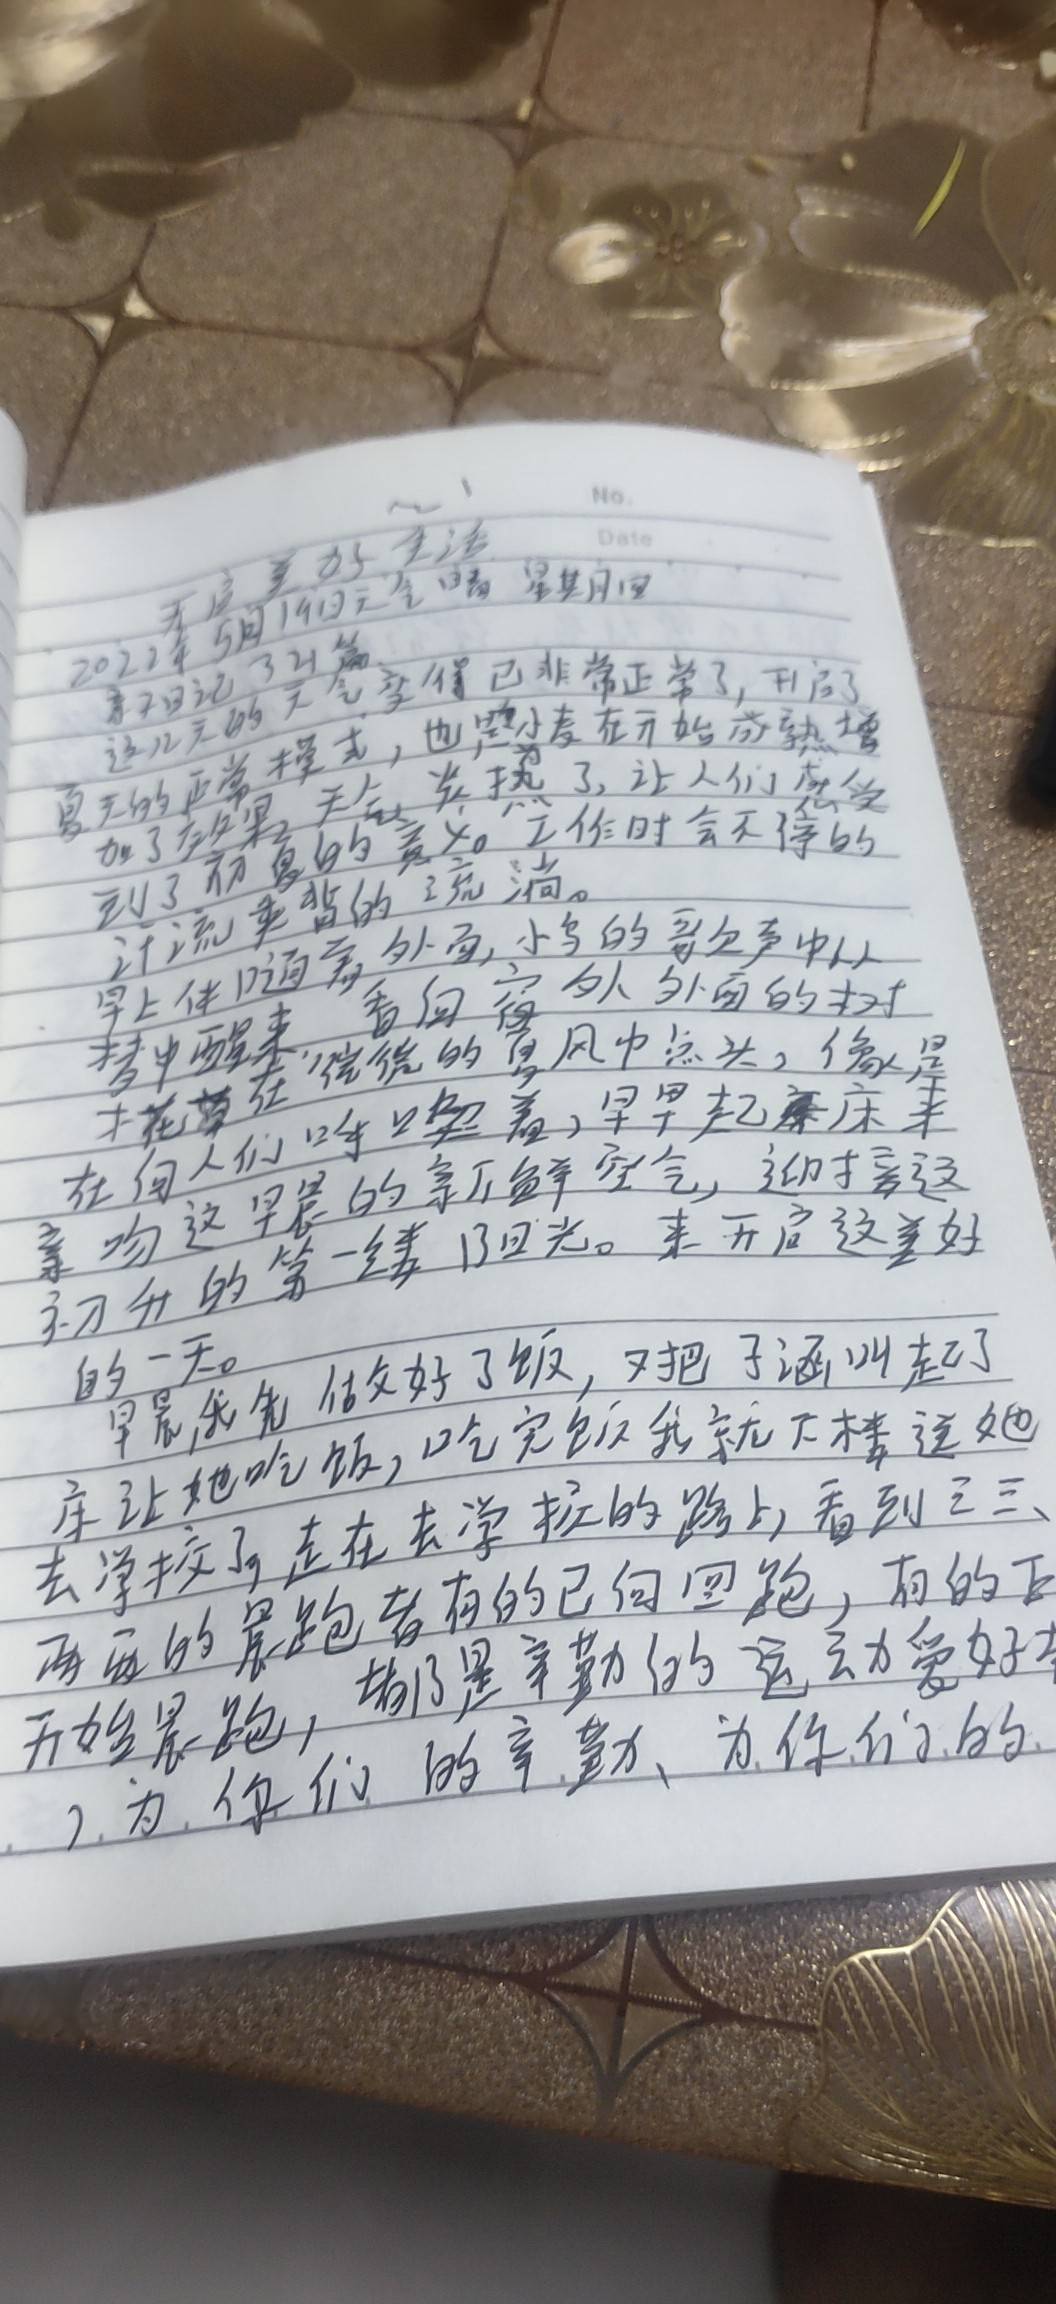 No.
Date
开启美好生活
2022年5月19日天气晴 星期四
亲子日记321篇
这几天的天气变得已非常正常了，开启了
夏天的正常模式，也为小麦在开始成熟增
加了效果，天气炎热了，让人们感受
到了初夏的意义。工作时会不停的
汗流夹背的流淌。
早上伴随着外面，小鸟的歌声中从
梦中醒来，看向窗外外面的树
木花草在徐徐的夏风中点头，像是
在向人们呼唤着，早早起床来
亲吻这早晨的新鲜空气，迎接这
初升的第一缕阳光。来开启这美好
的一天。
早晨，我先做好了饭，又把子涵叫起了
床让她吃饭，吃完饭我就下楼送她
去学校了，走在去学校的路上，看到三三、
两两的晨跑者有的已向回跑，有的正
开始晨跑，都是辛勤的运动爱好者
，为你们的辛勤、为你们的